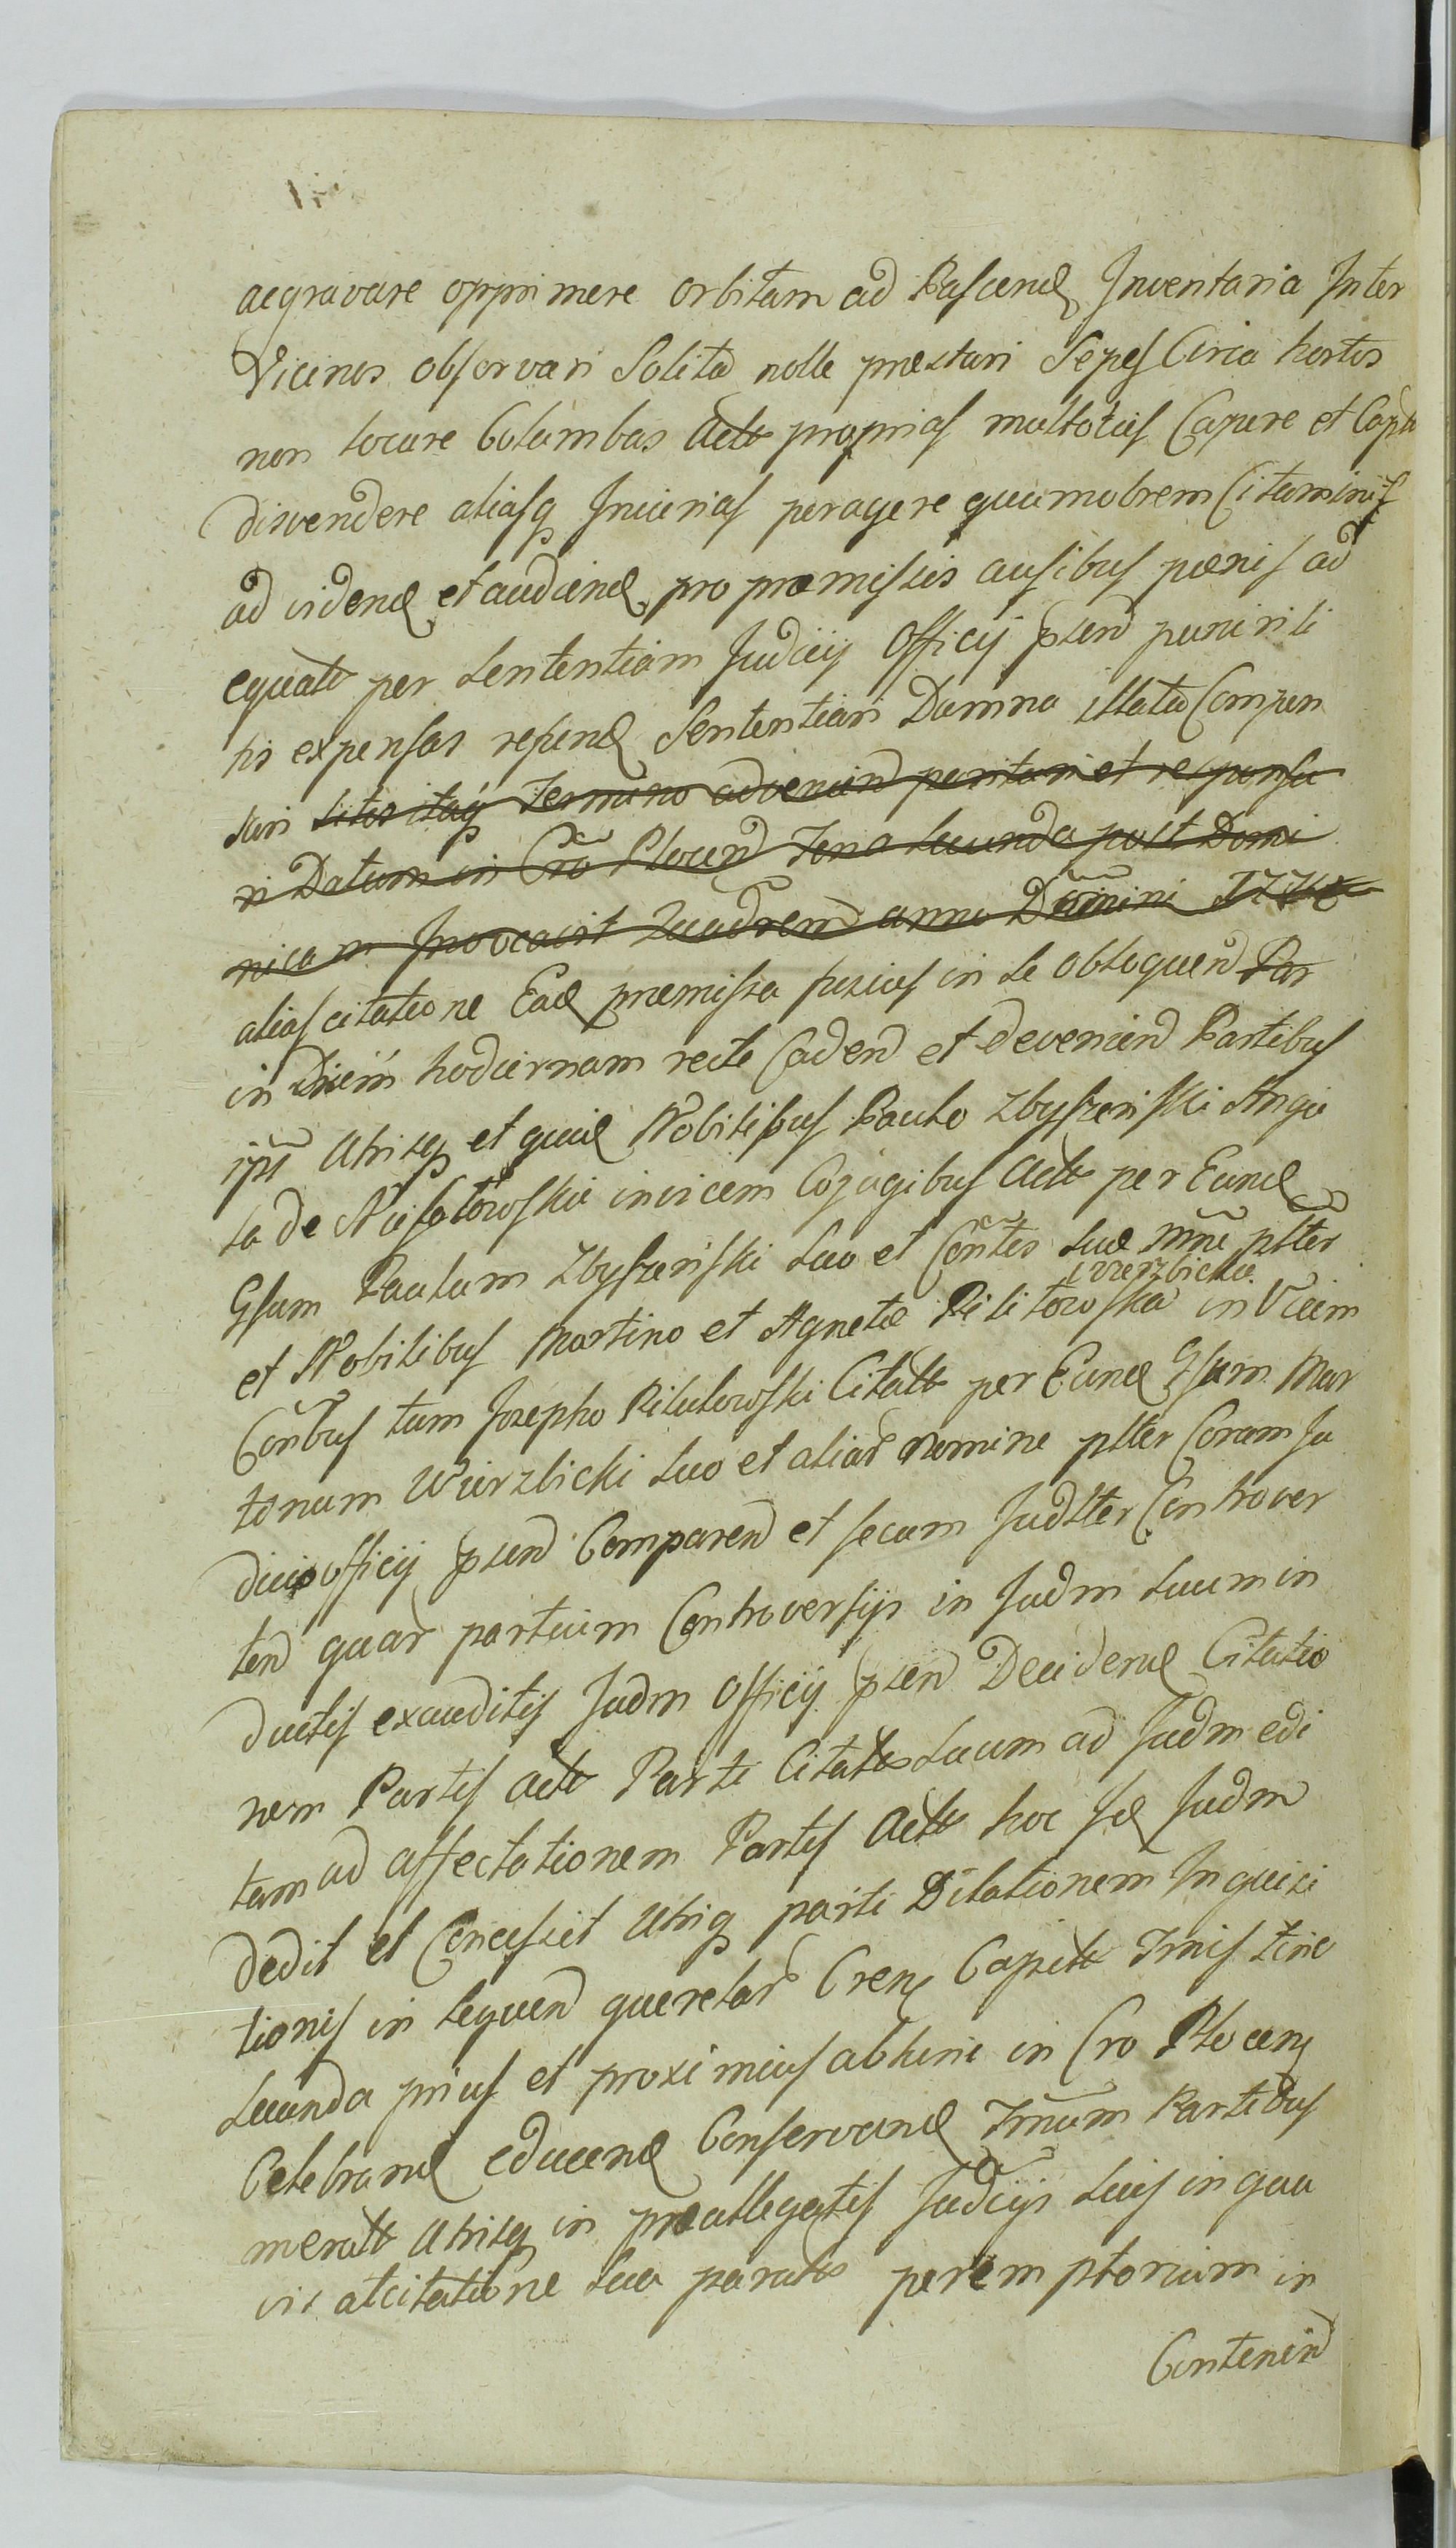 aegravare opprimere orbitam ad Pascend Inventaria Inter
Vicinos observari Solita nolle prestari Sepes Circa hortos
non locare Columbas Actt proprias multoties Capere et Capt
disvendere aliasq Iniurias peragere quamobrem Citamini
ad videnđ et audienđ pro praemissis ausibus paenis ad
equatt per Sententiam Judicij Officij psen puniri li
tis expensas refund Sententiari Damna illata Compen
sari litis itaq Termino advenien paritari et responsu
ri Datum in Cro Plocen Feria Secunda post Domi
nicam Invocavit Quadren anno Domini
alias citatione Ead praemissa fusius in se obloquen Par
in Diem hodiernam recte Caden et devenien Partibus
ipsis Utrisq et quid Nobilibus Paulo Zbyszenski Angie
la de invicem Cojugibus Actt per Eund
Gsum Paulum Zbyszenski suo et Contis suae nne pltter
wierzbickie
et Nobilibus Martino et Agnete Pilitowska in Vicem
Conbus tum Josepho Pilitowski Citatt per Eund Gsum Mar
tinum Wierzbicki suo et aliar nomine pltter Coram Ju
dicio officij psen Comparen et secum Judltter Controver
ten quar partium Controversijs in Judm suum in
ductis exauditis Judm Officij psen Deciden Citatio
nem Partis Actt Parti Citattae suum ad Judm edi
tam ad affectationem Partis Actt hoc id Judm
dedit et Concessit Utriq parti Dilationem Inquisi
tionis in sequen querelar Cren Capitt Tmis
Secunda prius et proximius abhinc in Cro Plocen
Celebrand educend Conservand Tmum Partibus
meratt Utrisq in praeallegatis Judicijs suis in qua
vis atcitatione sua paratis peremptorium in
Contenien